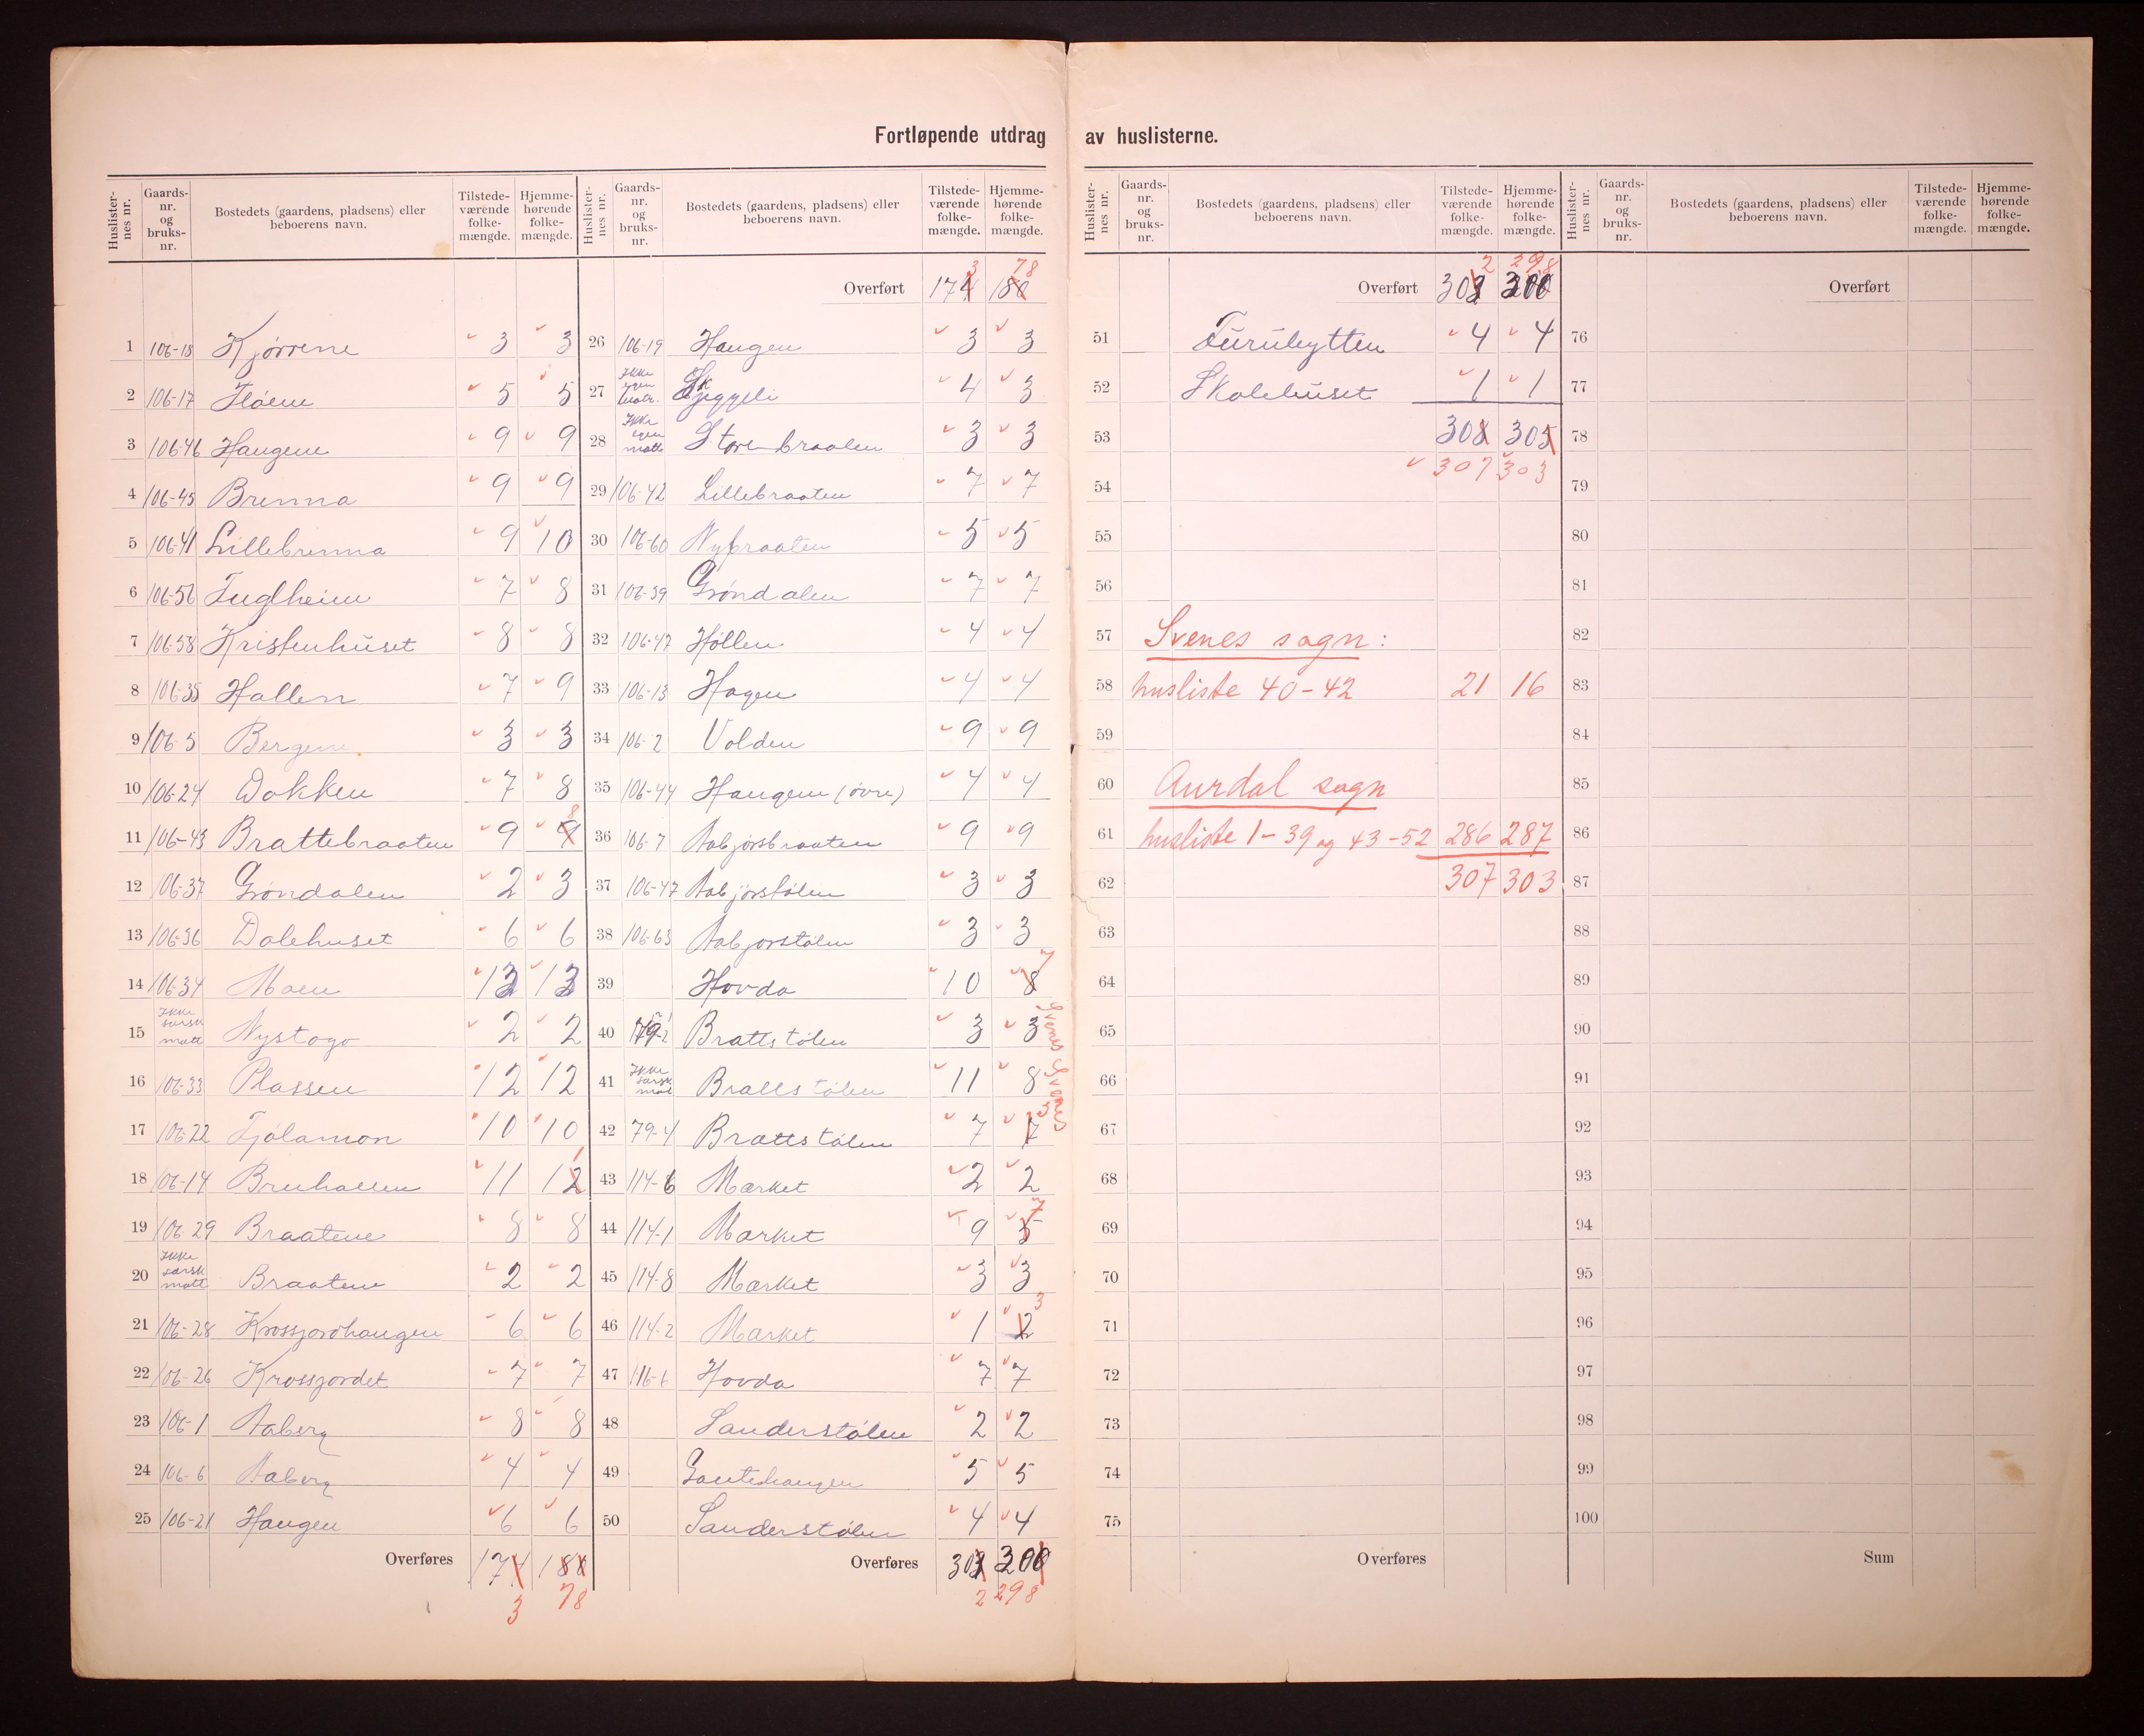 Fortløpende utdrag av huslisterne.
Huslister-nes nr. Gaards-nr. og bruks-nr. Bostedets (gaardens, pladsens) eller beboerens navn. Tilstede-værende folke-mængde. Hjemme-hørende folke-mængde.
1 106-18 Kjørrene 3 3
2 106-17 Fløem 5 5
3 106-46 Haugene 9 9
4 106-45 Brenna 9 9
5 106-41 Lillebrenna 9 10
6 106-56 Fuglheim 7 8
7 106-58 Kristenhuset 8 8
8 106-35 Hallen 7 9
9 106-5 Bergene 3 3
10 106-24 Dokken 7 8
11 106-43 Brattebraaten 9 9 8
12 106-37 Grøndalen 2 3
13 106-36 Dalehuset 6 6
14 106-34 Moen 13 13
15 Ikke særsk matr Nystogo 2 2
16 106-33 Plassen 12 12
17 106-22 Fjølamon 10 10
18 106-14 Bruhallen 11 12 1
19 106-29 Braatene 8 8
20 Ikke særsk matr Braatene 2 2
21 106-28 Krossjordhaugen 6 6
22 106-26 Krossjordet 7 7
23 106-1 Aaberg 8 8
24 106-6 Aaberg 4 4
25 106-21 Haugen 6 6
Overføres 174 180
3 78
Huslister-nes nr. Gaards-nr. og bruks-nr. Bostedets (gaardens, pladsens) eller beboerens navn. Tilstede-værende folke-mængde. Hjemme-hørende folke-mængde.
3 78
Overført 174 180
26 106-19 Haugen 3 3
27 Ikke egen matr. Skjeggeli 4 3
28 Ikke egen matr Storebraaten 3 3
29 106-42 Lillebraaten 7 7
30 106-60 Nybraaten 5 5
31 106-39 Grøndalen 7 7
32 106-47 Høllen 4 4
33 106-13 Hagen 4 4
34 106-2 Volden 9 9
35 106-44 Haugen (øvre) 4 4
36 106-7 Aabjørsbraaten 9 9
37 106-47 Aabjørstølen 3 3
38 106-63 Aabjørstølen 3 3
39 Hovda 10 8 7
40 79-2 Brattstølen 3 3 Svenes
41 Ikke særsk mat Brattstølen 11 8 Svenes
42 79-4 Brattstølen 7 7
43 114-6 Mærket 2 2
44 114-1 Mærket 9 5 7
45 114-8 Mærket 3 3
46 114-2 Mærket 1 2 3
47 116-1 Hovda 7 7
48 Sanderstølen 2 2
49 Gautehaugen 5 5
50 Sanderstølen 4 4
Overføres 303 300
2 298
Huslister-nes nr. Gaards-nr. og bruks-nr. Bostedets (gaardens, pladsens) eller beboerens navn. Tilstede-værende folke-mængde. Hjemme-hørende folke-mængde.
2 298
Overført 303 300
51 Furuhytten 4 4
52 Skolehuset 1 1
53 308 305
307 303
54
55
56
57 Svenes sogn:
58 husliste 40-42 21 16
59
60 Aurdal sogn
61 husliste 1-39 og 43-52 286 287
62 307 303
63
64
65
66
67
68
69
70
71
72
73
74
75
Overføres
Huslister-nes nr. Gaards-nr. og bruks-nr. Bostedets (gaardens, pladsens) eller beboerens navn. Tilstede-værende folke-mængde. Hjemme-hørende folke-mængde.
Overført
76
77
78
79
80
81
82
83
84
85
86
87
88
89
90
91
92
93
94
95
96
97
98
99
100
Sum